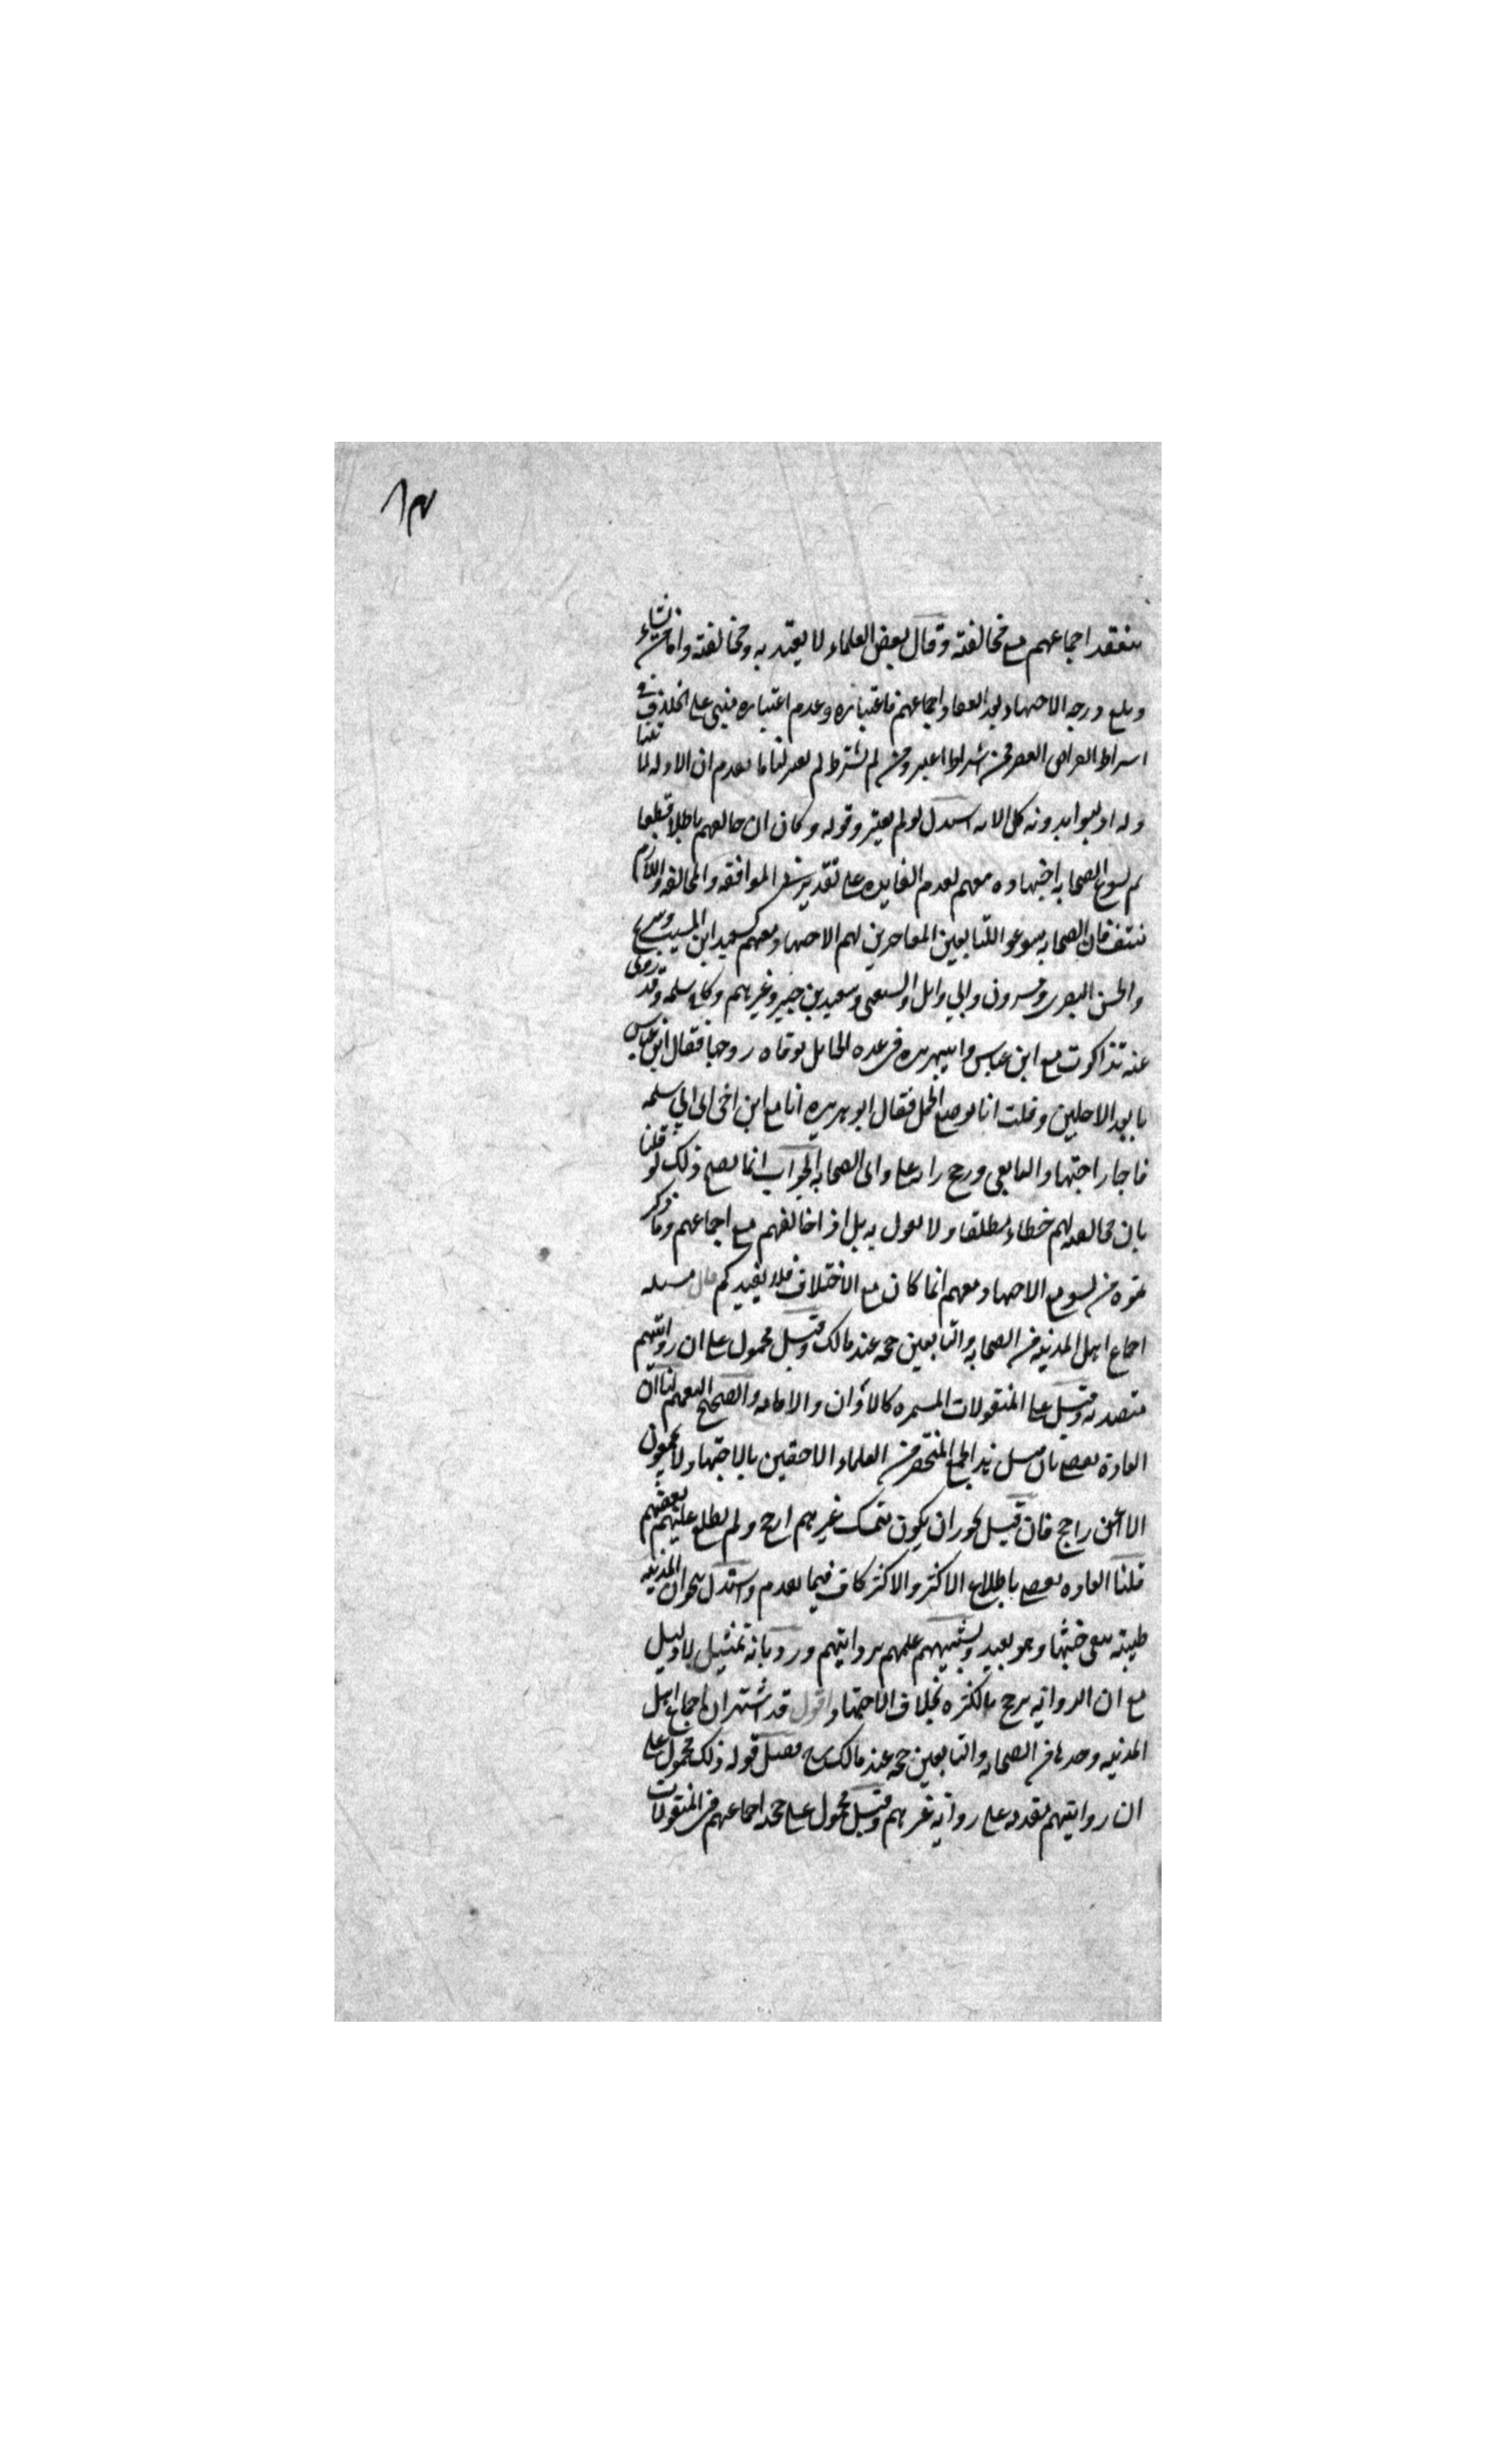 ٨٣
ينعقد اجماعهم مع مخالفته وقال بعض العلماء لا يعتد به ومخالفته واما من نشاء
وبلغ درجه الاجتهاد بعد انعقاد اجماعهم فاعتباره وعدم اعتباره مبني على الخلاف في
اشراط انقراض العصر فمن اشراط اعتبر ومن لم يشترط لم يعتبر لنا ما تقدم ان الادله لنا
وله او لغيرا بدونه كل الامه استدل لو لم يعتبر وقوله وكان ان خالفهم باطلا قطعا
لم يسوغ الصحابه اجتهاده معهم لعدم الفايده على تقدير الموافقه والمخالفه واللازم
منتف فان الصحابه سوغوا للتابعين المعاصرين لهم الاجتهاد معهم كسعيد ابن المسيب وشريح
والحسن البصري ومسروق وابي وائل والشعبي وسعيد بن جبير وغيرهم وكابي سلمه وقد روى
عنه تذاكرت مع ابن عباس وابي هريره في عده الحامل لوفاه زوجها فقال ابن عباس
بابعد الاجلين وقلت انا بوضع الحمل فقال ابو هريره انا مع ابن اخي اي ابي سلمه
فاجاز اجتهاد التابعي ورجح رايه على راى الصحابه الجواب انما يصح ذلك لو قلنا
بان مخالفته لهم خطاء مطلقا ولا نقول به بل اذا خالفهم مع اجماعهم وما ذكر
تموه من تسويغ الاجتهاد معهم انما كان مع الاختلاف فلا يفيدكم قال مسله
اجماع اهل المدينه من الصحابه والتابعين حجه عند مالك وقيل محمول على ان روايتهم
متقدمه وقيل على المنقولات المستمره كالاذان والاقامه والصحيح التعميم لنا ان
العاده تقضي بان مثل هذا الجمع المنحصر من العلماء الاحقين بالاجتهاد لا يجمعون
الا عن راجح فان قيل يجوز ان يكون متمسك غيرهم ارجح ولم يطلع عليهم بعضهم
قلنا العاده تقضي باطلاع الاكثر والاكثر كاف فيما تقدم واستدل بنحو ان المدينه
طيبته تنفى خبثها وهو بعيد وبتشبيههم علمهم بروايتهم ورد بانه تمثيل لا دليل
مع ان الروايه ترجح بالكثره بخلاف الاجتهاد اقول قد اشتهر ان اجماع اهل
المدينه وحدها من الصحابه والتابعين حجه عند مالك فقيل قوله ذلك محمول على
ان روايتهم متقدمه على روايه غيرهم وقيل محمول على حجه اجماعهم في المنقولات